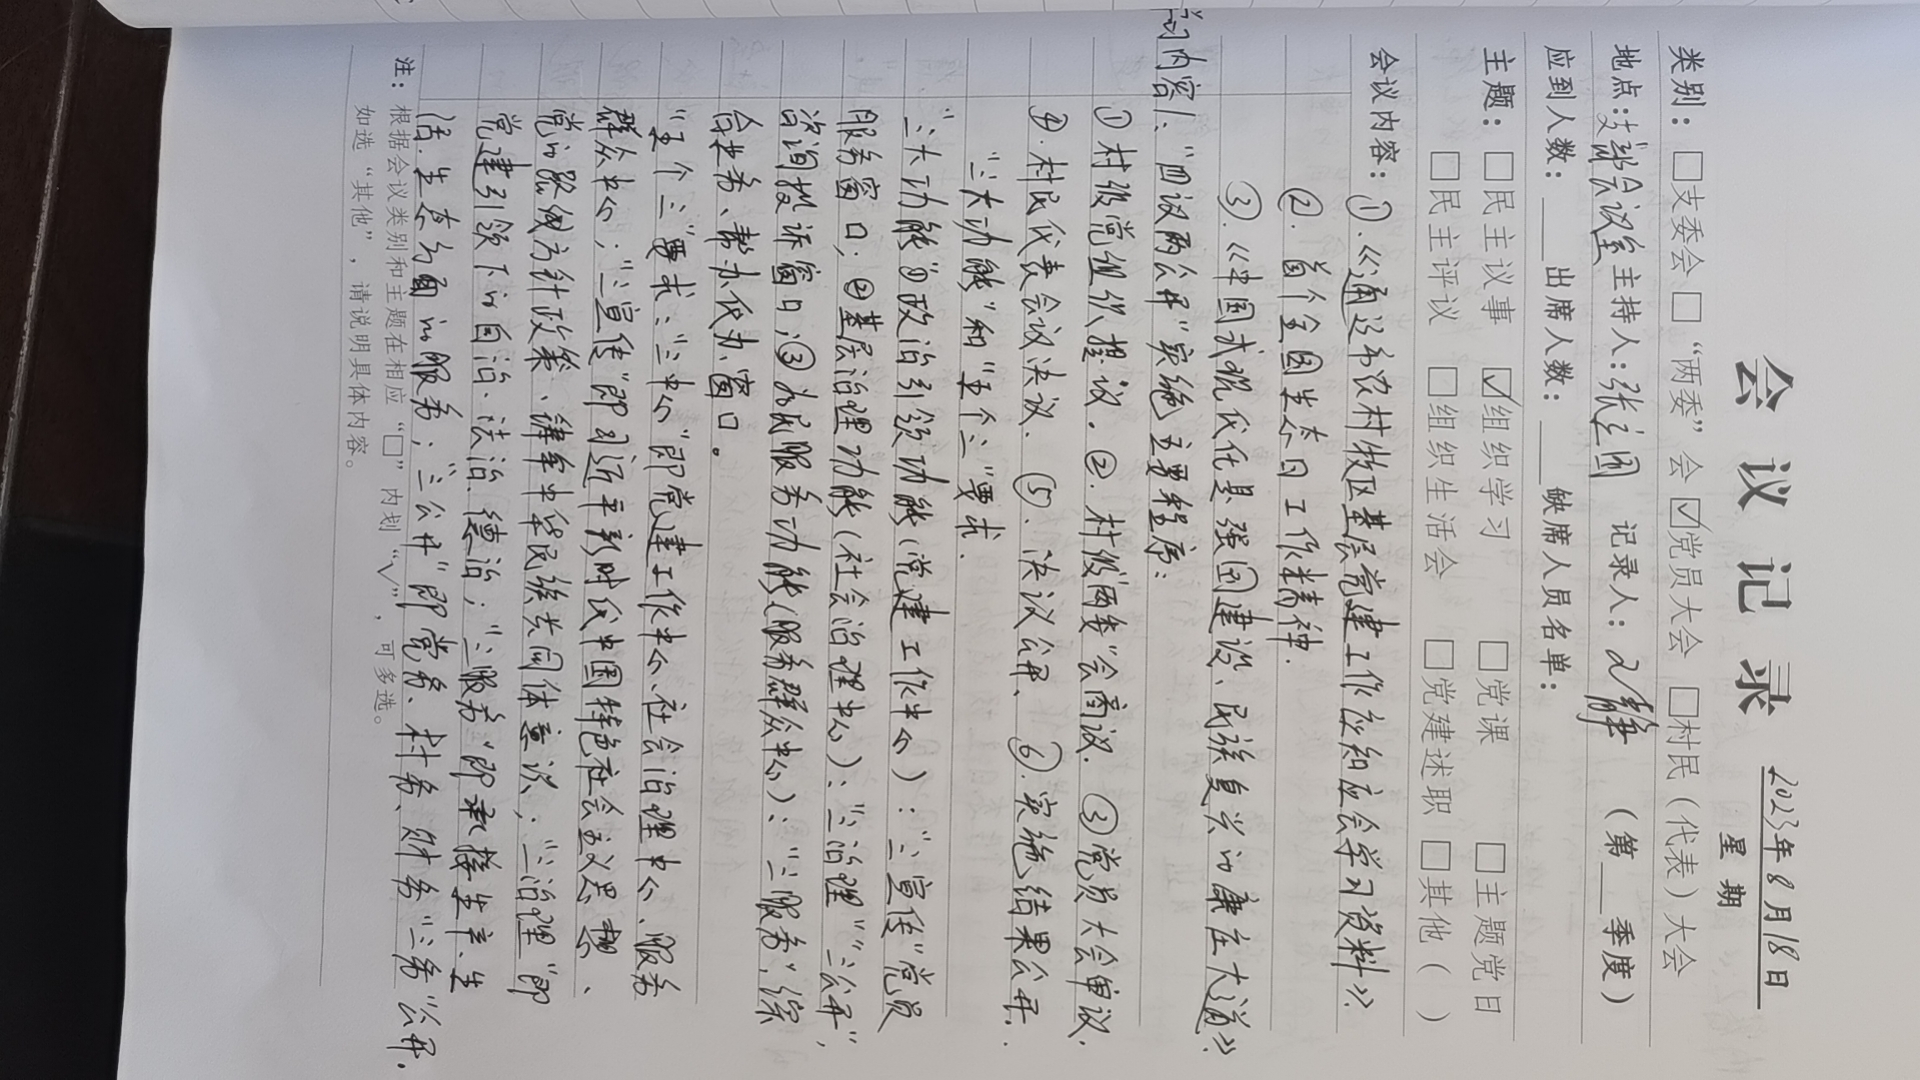 会议记录
2023年8月18日
星期
类别：□支委会 □“两委”会 ☑党员大会 □村民（代表）大会
地点：支部会议室 主持人：张主国 记录人： 静 （第 季度）
应到人数： 出席人数： 缺席人员名单：
主题：□民主议事 ☑组织学习 □党课 □主题党日
□民主评议 □组织生活会 □党建述职 □其他（ ）
会议内容：①.《通辽市农村牧区基层党建工作应知应会学习资料》.
②.首个全国生态日工作精神.
③.《中国式现代化是强国建设、民族复兴的康庄大道》.
学习内容1."四议两公开"实施主要程序：
①村级党组织提议.②.村级"两委"会商议.③党员大会审议.
④.村民代表会议决议.⑤.决议公开、⑥.实施结果公开.
"三大功能"和"五个三"要求.
"三大功能"①政治引领功能(党建工作中心)："三宣传"党员
服务窗口;②基层治理功能(社会治理中心)："三治理""三公开",
咨询投诉窗口;③为民服务功能(服务群众中心)："三服务",综
合业务、帮办代办窗口。
"五个三"要求："三中心"即党建工作中心、社会治理中心、服务
群众中心;"三宣传"即习近平新时代中国特色社会主义思想、
党的路线方针政策、铸牢中华民族共同体意识;"三治理"即
党建引领下的自治、法治、德治;"三服务"即承接生产、生
活、生态方面的服务;"三公开"即党务、村务、财务"三务"公开.
注：根据会议类别和主题在相应“□”内划“√”，可多选。
如选“其他”，请说明具体内容。